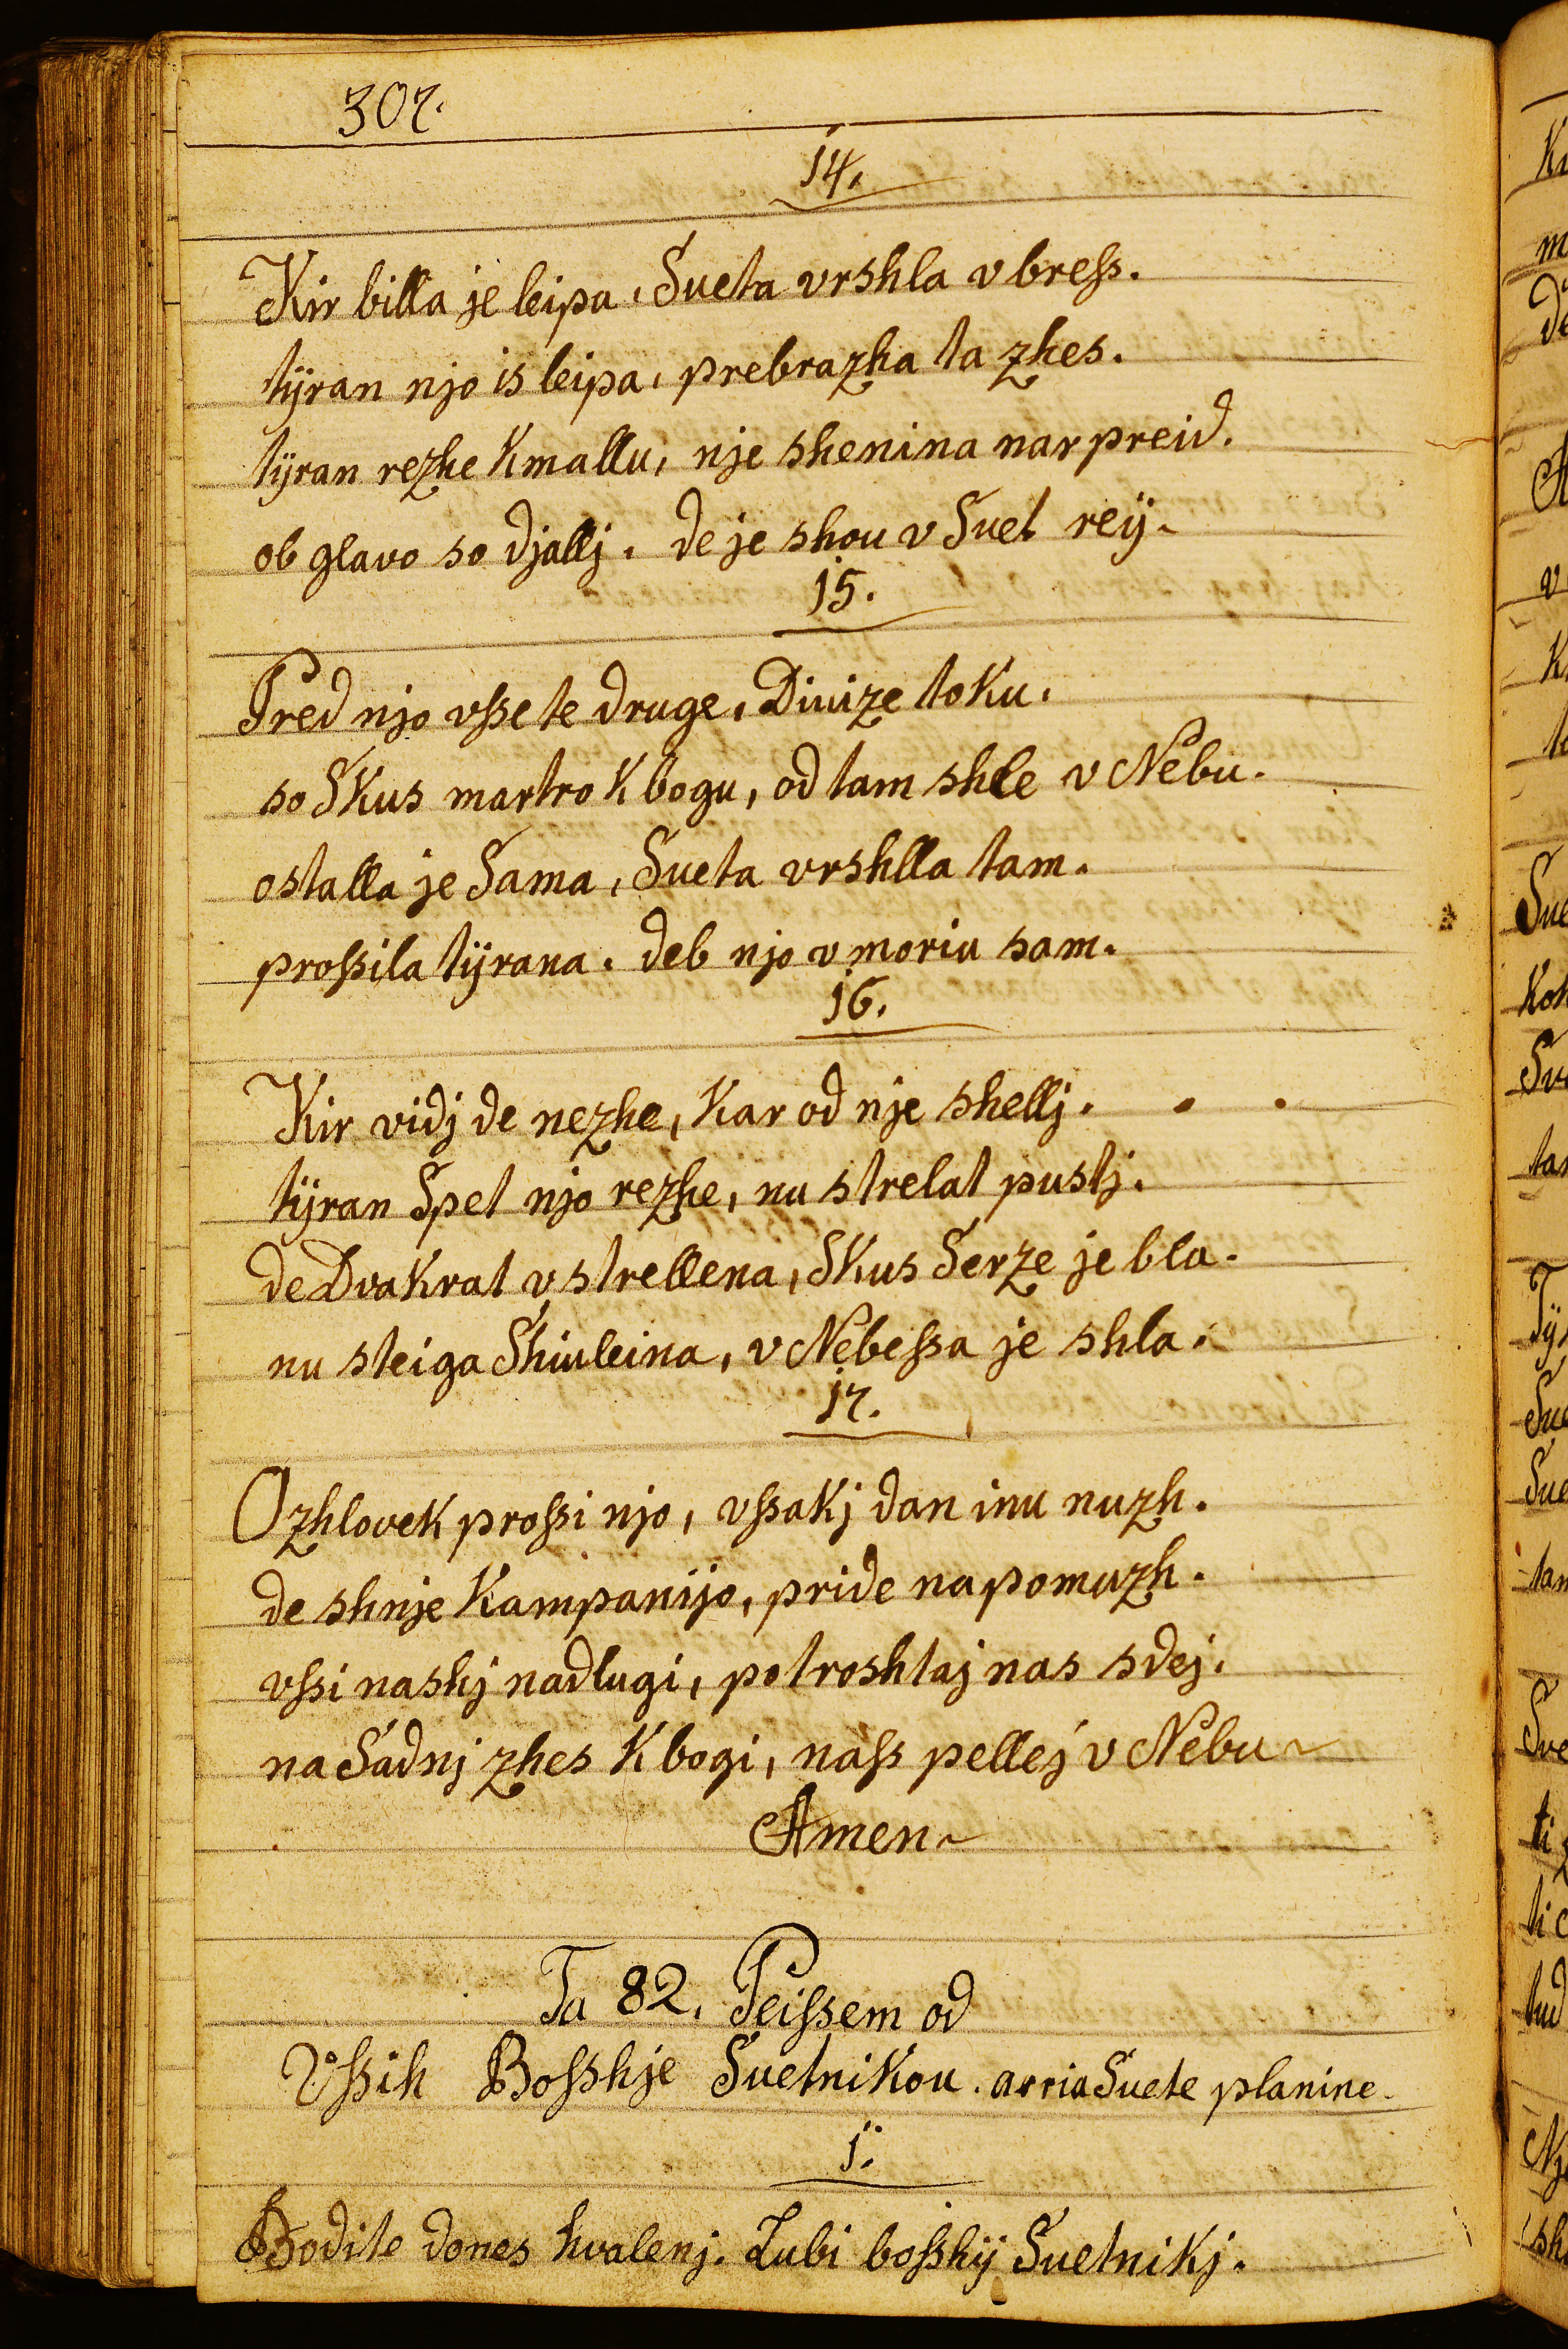 307.
14.
Kir billa je leipa, Sueta vrshla v bress.
tÿran njo is leipa, prebrazha ta zhes.
tÿran rezhe Kmallu, nje shenina nar preid.
ob glavo so djallj. de je shou v Suet reÿ.
15.
Pred njo vsse te druge, Diuize toku.
so Skus martro K bogu, od tam shle v Nebu.
ostalla je Sama, Sueta vrshlla tam.
prossila tÿrana. deb njo v moriu sam.
16.
Kir vidj de nezhe, Kar od nje shellj. . .
tÿran Spet njo rezhe, nu strelat pustj.
de Dvakrat vstrellena, Skus Serze je bla.
nu steiga Shiuleina, v Nebessa je shla.
17.
O zhlovek prossi njo, vssakj dan inu nuzh.
de shnje Kampanijo, pride na pomuzh.
vssi nashj nadlugi, potroshtaj nas sdej.
na Sadnj zhes K bogi, nass pellej v Nebu
Amen
Ta 82. Peissem od
Vssih Bosshje Suetnikou. arria Suete planine.
1.
Bodite dones hvalenj. Lubi bosshij Suetnikj.